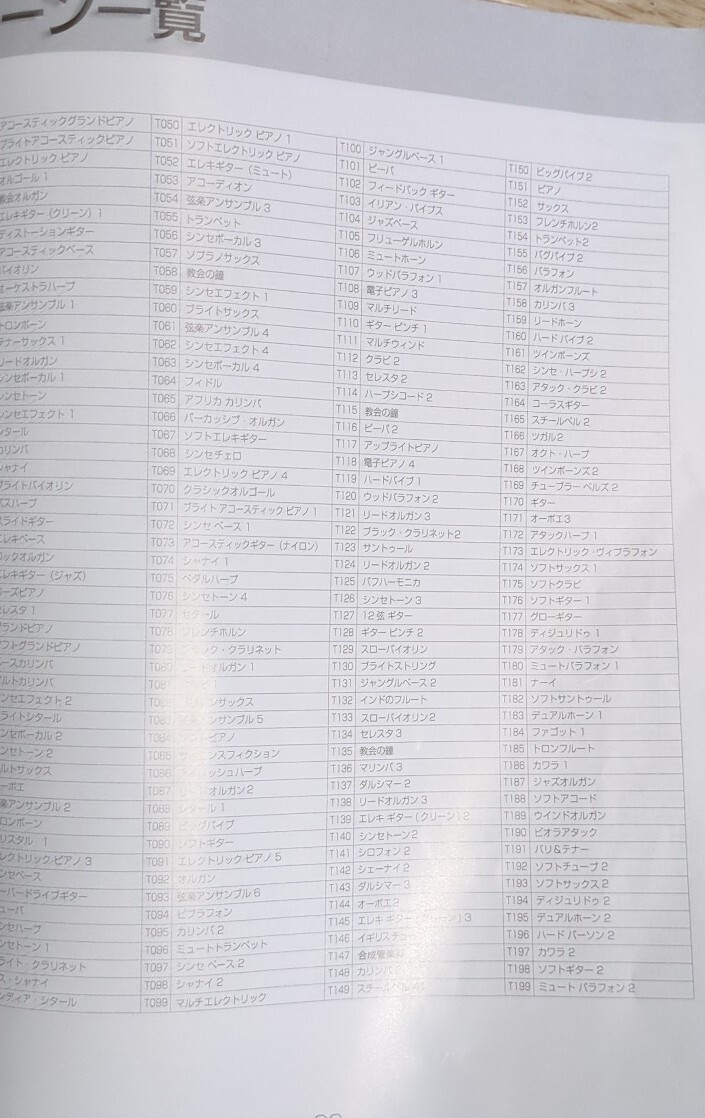 ーン一覧
アコースティックグランドピアノ
ブライトアコースティックピアノ
エレクトリック ピアノ
オルゴール 1
教会オルガン
エレキギター（クリーン）1
ディストーションギター
アコースティックベース
バイオリン
オーケストラハープ
弦楽アンサンブル 1
トロンボーン
テナーサックス 1
リードオルガン
シンセボーカル 1
シンセトーン
シンセエフェクト 1
シタール
カリンバ
シャナイ
ブライトバイオリン
バスハープ
スライドギター
エレキベース
ロックオルガン
エレキギター（ジャズ）
セレスタ 1
グランドピアノ
ソフトグランドピアノ
ベースカリンバ
アルトカリンバ
シンセエフェクト 2
ブライトシタール
シンセボーカル 2
シンセトーン 2
アルトサックス
オーボエ
弦楽アンサンブル 2
トロンボーン
クリスタル 1
エレクトリック・ピアノ 3
シンセベース
オーバードライブギター
チューバ
シンセハープ
シンセトーン 1
ブライト・クラリネット
ス・シャナイ
インディア・シタール
T050 エレクトリック ピアノ 1
T051 ソフトエレクトリック ピアノ
T052 エレキギター（ミュート）
T053 アコーディオン
T054 弦楽アンサンブル 3
T055 トランペット
T056 シンセボーカル 3
T057 ソプラノサックス
T058 教会の鐘
T059 シンセエフェクト 1
T060 ブライトサックス
T061 弦楽アンサンブル 4
T062 シンセエフェクト 4
T063 シンセボーカル 4
T064 フィドル
T065 アフリカ カリンバ
T066 パーカッシブ・オルガン
T067 ソフトエレキギター
T068 シンセチェロ
T069 エレクトリック ピアノ 4
T070 クラシックオルゴール
T071 ブライト アコースティック ピアノ 1
T072 シンセ ベース 1
T073 アコースティックギター（ナイロン）
T074 シャナイ 1
T075 ペダルハープ
T076 シンセトーン 4
T077 セタール
T078 フレンチホルン
T079 ・クラリネット
ードオルガン 1
T081 1
サックス
アンサンブル 5
ピアノ
T085 ンスフィクション
T086 リッシュハープ
T087 オルガン 2
T088 シタール 1
T089 ビッグパイプ
T090 ソフトギター
T091 エレクトリック ピアノ 5
T092 オルガン
T093 弦楽アンサンブル 6
T094 ビブラフォン
T095 カリンバ 2
T096 ミュートトランペット
T097 シンセ ベース 2
T098 シャナイ 2
T099 マルチエレクトリック
T100 ジャングルベース 1
T101 ピーパ
T102 フィードバック ギター
T103 イリアン・パイプス
T104 ジャズベース
T105 フリューゲルホルン
T106 ミュートホーン
T107 ウッドバラフォン 1
T108 電子ピアノ 3
T109 マルチリード
T110 ギター ピンチ 1
T111 マルチウィンド
T112 クラビ 2
T113 セレスタ 2
T114 ハープシコード 2
T115 教会の鐘
T116 ピーパ 2
T117 アップライトピアノ
T118 電子ピアノ 4
T119 ハードパイプ 1
T120 ウッドバラフォン 2
T121 リードオルガン 3
T122 ブラック・クラリネット2
T123 サントゥール
T124 リードオルガン 2
T125 パフハーモニカ
T126 シンセトーン 3
T127 12 弦 ギター
T128 ギター ピンチ 2
T129 スローバイオリン
T130 ブライトストリング
T131 ジャングルベース 2
T132 インドのフルート
T133 スローバイオリン 2
T134 セレスタ 3
T135 教会の鐘
T136 マリンバ 3
T137 ダルシマー 2
T138 リードオルガン 3
T139 エレキ ギター（クリーン）2
T140 シンセトーン 2
T141 シロフォン 2
T142 シェーナイ 2
T143 ダルシマー 3
T144 オーボエ 2
T145 エレキ ギター（クリーン）3
T146 イギリス
T147 合成管楽
T148 カリンバ
T149 スチールベル
T150 ビッグパイプ 2
T151 ピアノ
T152 サックス
T153 フレンチホルン2
T154 トランペット2
T155 バグパイプ 2
T156 バラフォン
T157 オルガンフルート
T158 カリンバ 3
T159 リードホーン
T160 ハード パイプ 2
T161 ツインボーンズ
T162 シンセ・ハープシ 2
T163 アタック・クラビ 2
T164 コーラスギター
T165 スチールベル 2
T166 ツガル 2
T167 オクト・ハープ
T168 ツインボーンズ 2
T169 チューブラー ベルズ 2
T170 ギター
T171 オーボエ3
T172 アタックハープ 1
T173 エレクトリック・ヴィブラフォン
T174 ソフトサックス 1
T175 ソフトクラビ
T176 ソフトギター 1
T177 グローギター
T178 ディジュリドゥ 1
T179 アタック・バラフォン
T180 ミュートバラフォン 1
T181 ナーイ
T182 ソフトサントゥール
T183 デュアルホーン 1
T184 ファゴット 1
T185 トロンフルート
T186 カワラ 1
T187 ジャズオルガン
T188 ソフトアコード
T189 ウインドオルガン
T190 ビオラアタック
T191 バリ&テナー
T192 ソフトチューブ 2
T193 ソフトサックス 2
T194 ディジュリドゥ 2
T195 デュアルホーン 2
T196 ハード パーソン 2
T197 カワラ 2
T198 ソフトギター 2
T199 ミュート バラフォン 2